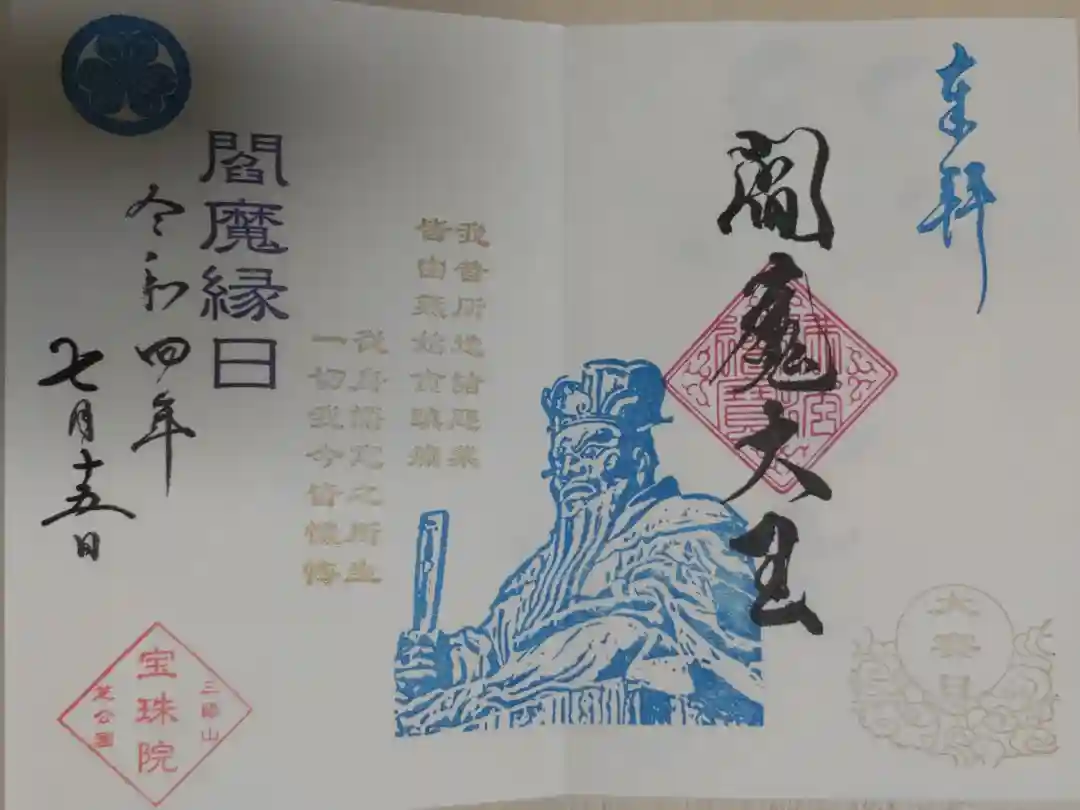 奉拝
閻魔大王
大斎日
我昔所造諸悪業
皆由無始貪瞋痴
従身語意之所生
一切我今皆懺悔
閻魔縁日
令和四年
七月十五日
三縁山
宝珠院
芝公園